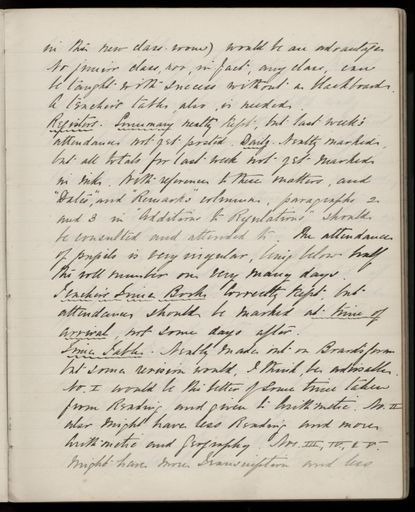 in this new class-room) would be an advantage.
No junior class, nor, in fact, any class, can
be taught with success without a blackboard.
A teacher's table, also, is needed.
Registers. Summary neatly kept, but last week's
attendances not yet posted. Daily. Neatly marked,
but all totals for last week not yet marked
in ink. With reference to these matters, and
"Dates", and Remarks" columns, paragraphs 2
and 3 in "Additions to Regulations" should
be consulted and attended to. The attendance
of pupils is very irregular, being below half
the roll number on very many days.
Teachers' Time Book. Correctly kept, but
attendances should be marked at time of
arrival, not some days after.
Time Tables. Neatly made out on Board's form
but some revision would, I think, be advisable.
No. I would be the better of some time taken
from Reading and given to Arithmetic. No. II
also might have less Reading and more
Arithmetic and Geography. Nos. III, IV, & V.
might have more Transcription and less